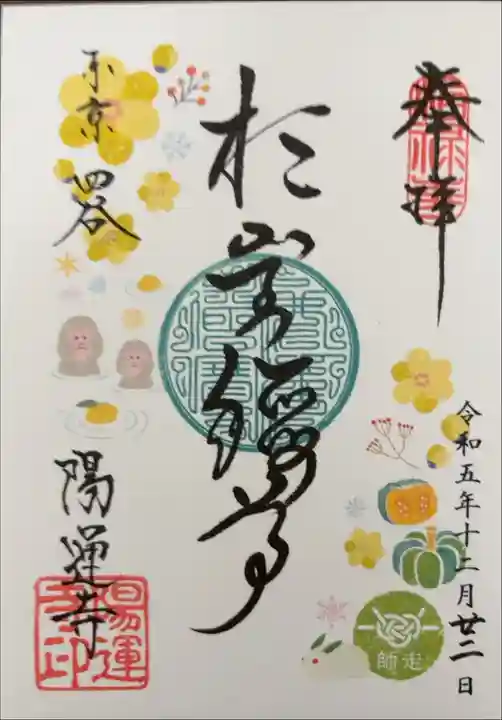 奉拝
令和五年十二月廿二日
於岩尊
東京
四谷
陽運寺
陽運
寺印
師走